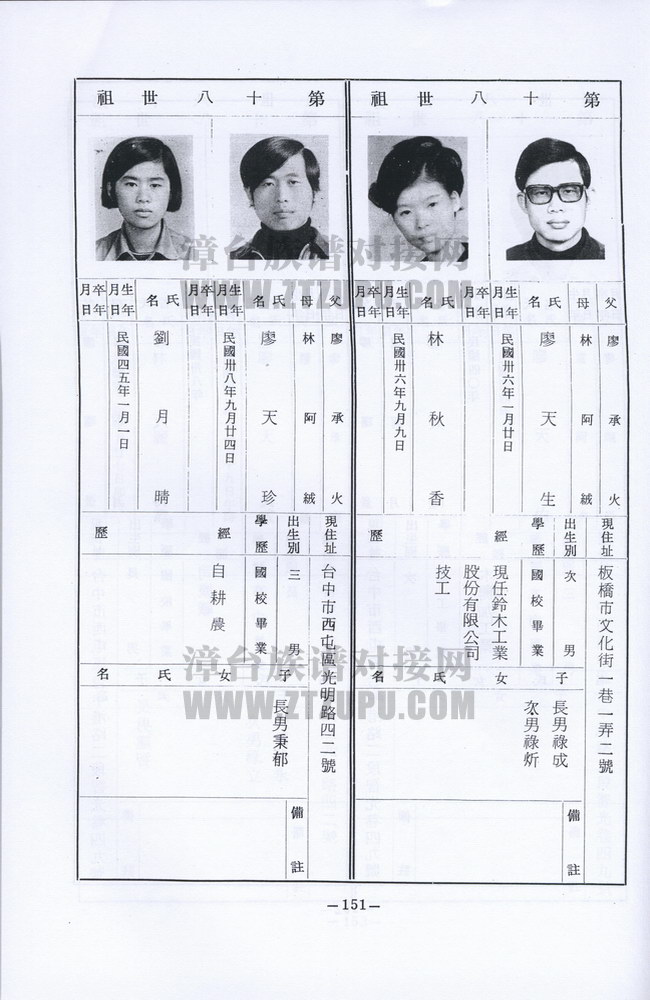 第十八世祖
父 廖承火
母 林阿絨
氏名 廖天生
生年月日 民國卅六年一月廿日
卒年月日
氏名 林秋香
生年月日 民國卅六年九月九日
卒年月日
現住址 板橋市文化街一巷一弄二號
出生別 次男
學歷 國校畢業
經歷 現任鈴木工業
股份有限公司
技工
子女氏名
長男祿成
次男祿炘
備註
第十八世祖
父 廖承火
母 林阿絨
氏名 廖天珍
生年月日 民國卅八年九月廿四日
卒年月日
氏名 劉月晴
生年月日 民國四五年一月一日
卒年月日
現住址 台中市西屯區光明路四二號
出生別 三男
學歷 國校畢業
經歷 自耕農
子女氏名
長男秉郁
備註
漳台族谱对接网
WWW.ZTZUPU.COM
漳台族谱对接网
WWW.ZTZUPU.COM
—151—